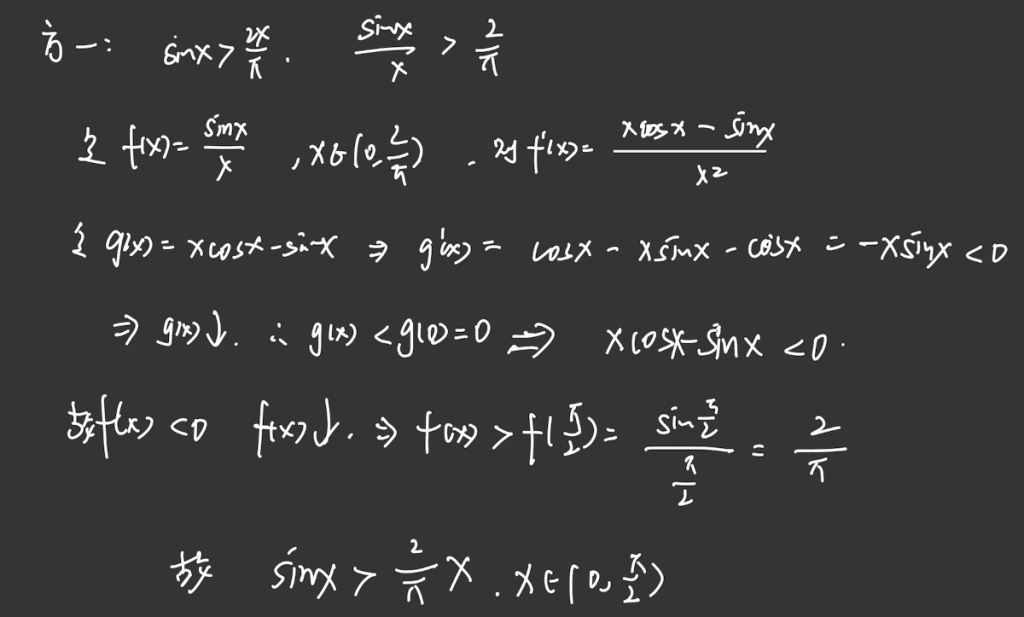 方一： sinx > 2x/π . sinx/x > 2/π
令 f(x) = sinx/x , x∈(0, 2/π) . 则 f'(x) = (xcosx - sinx)/x²
令 g(x) = xcosx - sinx ⇒ g'(x) = cosx - xsinx - cosx = -xsinx < 0
⇒ g(x)↓. ∴ g(x) < g(0) = 0 ⇒ xcosx - sinx < 0 .
故 f(x) < 0 f(x)↓. ⇒ f(x) > f(π/2) = sin(π/2)/(π/2) = 2/π
故 sinx > 2/π x . x∈(0, π/2)